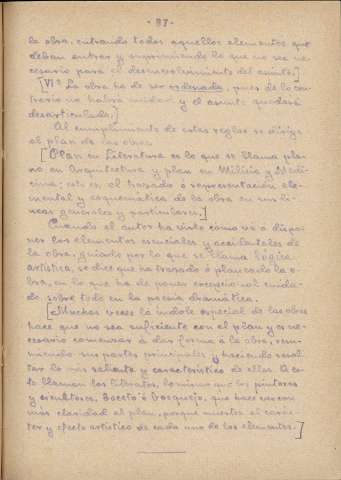 - 87 -
la obra, entrando todos aquellos elementos que
deban entrar y suprimiendo lo que no sea ne-
cesario para el desenvolvimiento del asunto.]
[VIª La obra ha de ser ordenada, pues de lo con-
trario no habrá unidad y el asunto quedará
desarticulado.]
Al cumplimiento de estas reglas se dirige
el plan de las obras.
[Plan en Literatura es lo que se llama pla-
no en Arquitectura y plan en Milicia y Medi-
cina; esto es, el trazado ó representación ele-
mental y esquemática de la obra en sus lí-
neas generales y particulares.]
Cuando el autor ha visto cómo va a dispo-
ner los elementos esenciales y accidentales de
la obra, guiado por lo que se llama lógica
artística, se dice que ha trazado ó planeado la o-
bra, en lo que ha de poner excepcional cuida-
do, sobre todo en la poesía dramática.
[Muchas veces la índole especial de las obras
hace que no sea suficiente con el plan y es ne-
cesario comenzar á dar forma á la obra, reu-
niendo sus partes principales y haciendo resal-
tar lo más saliente y característico de ellas. A es-
to llaman los literatos, lo mismo que los pintores
y escultores, boceto ó bosquejo, que hace ver con
más claridad el plan, porque muestra el carác-
ter y efecto artístico de cada uno de los elementos.]